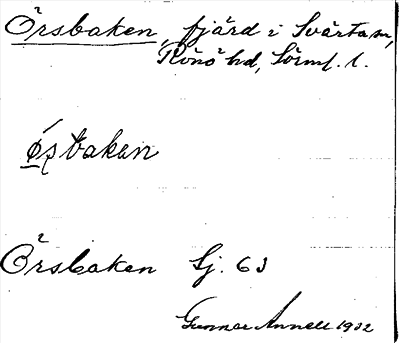 Örsbaken, fjärd i Svärta sn,
Rönö hd, Sörml. l.
ǿsbakan
Örsbaken Sj. 63
Gunnar Annell 1932